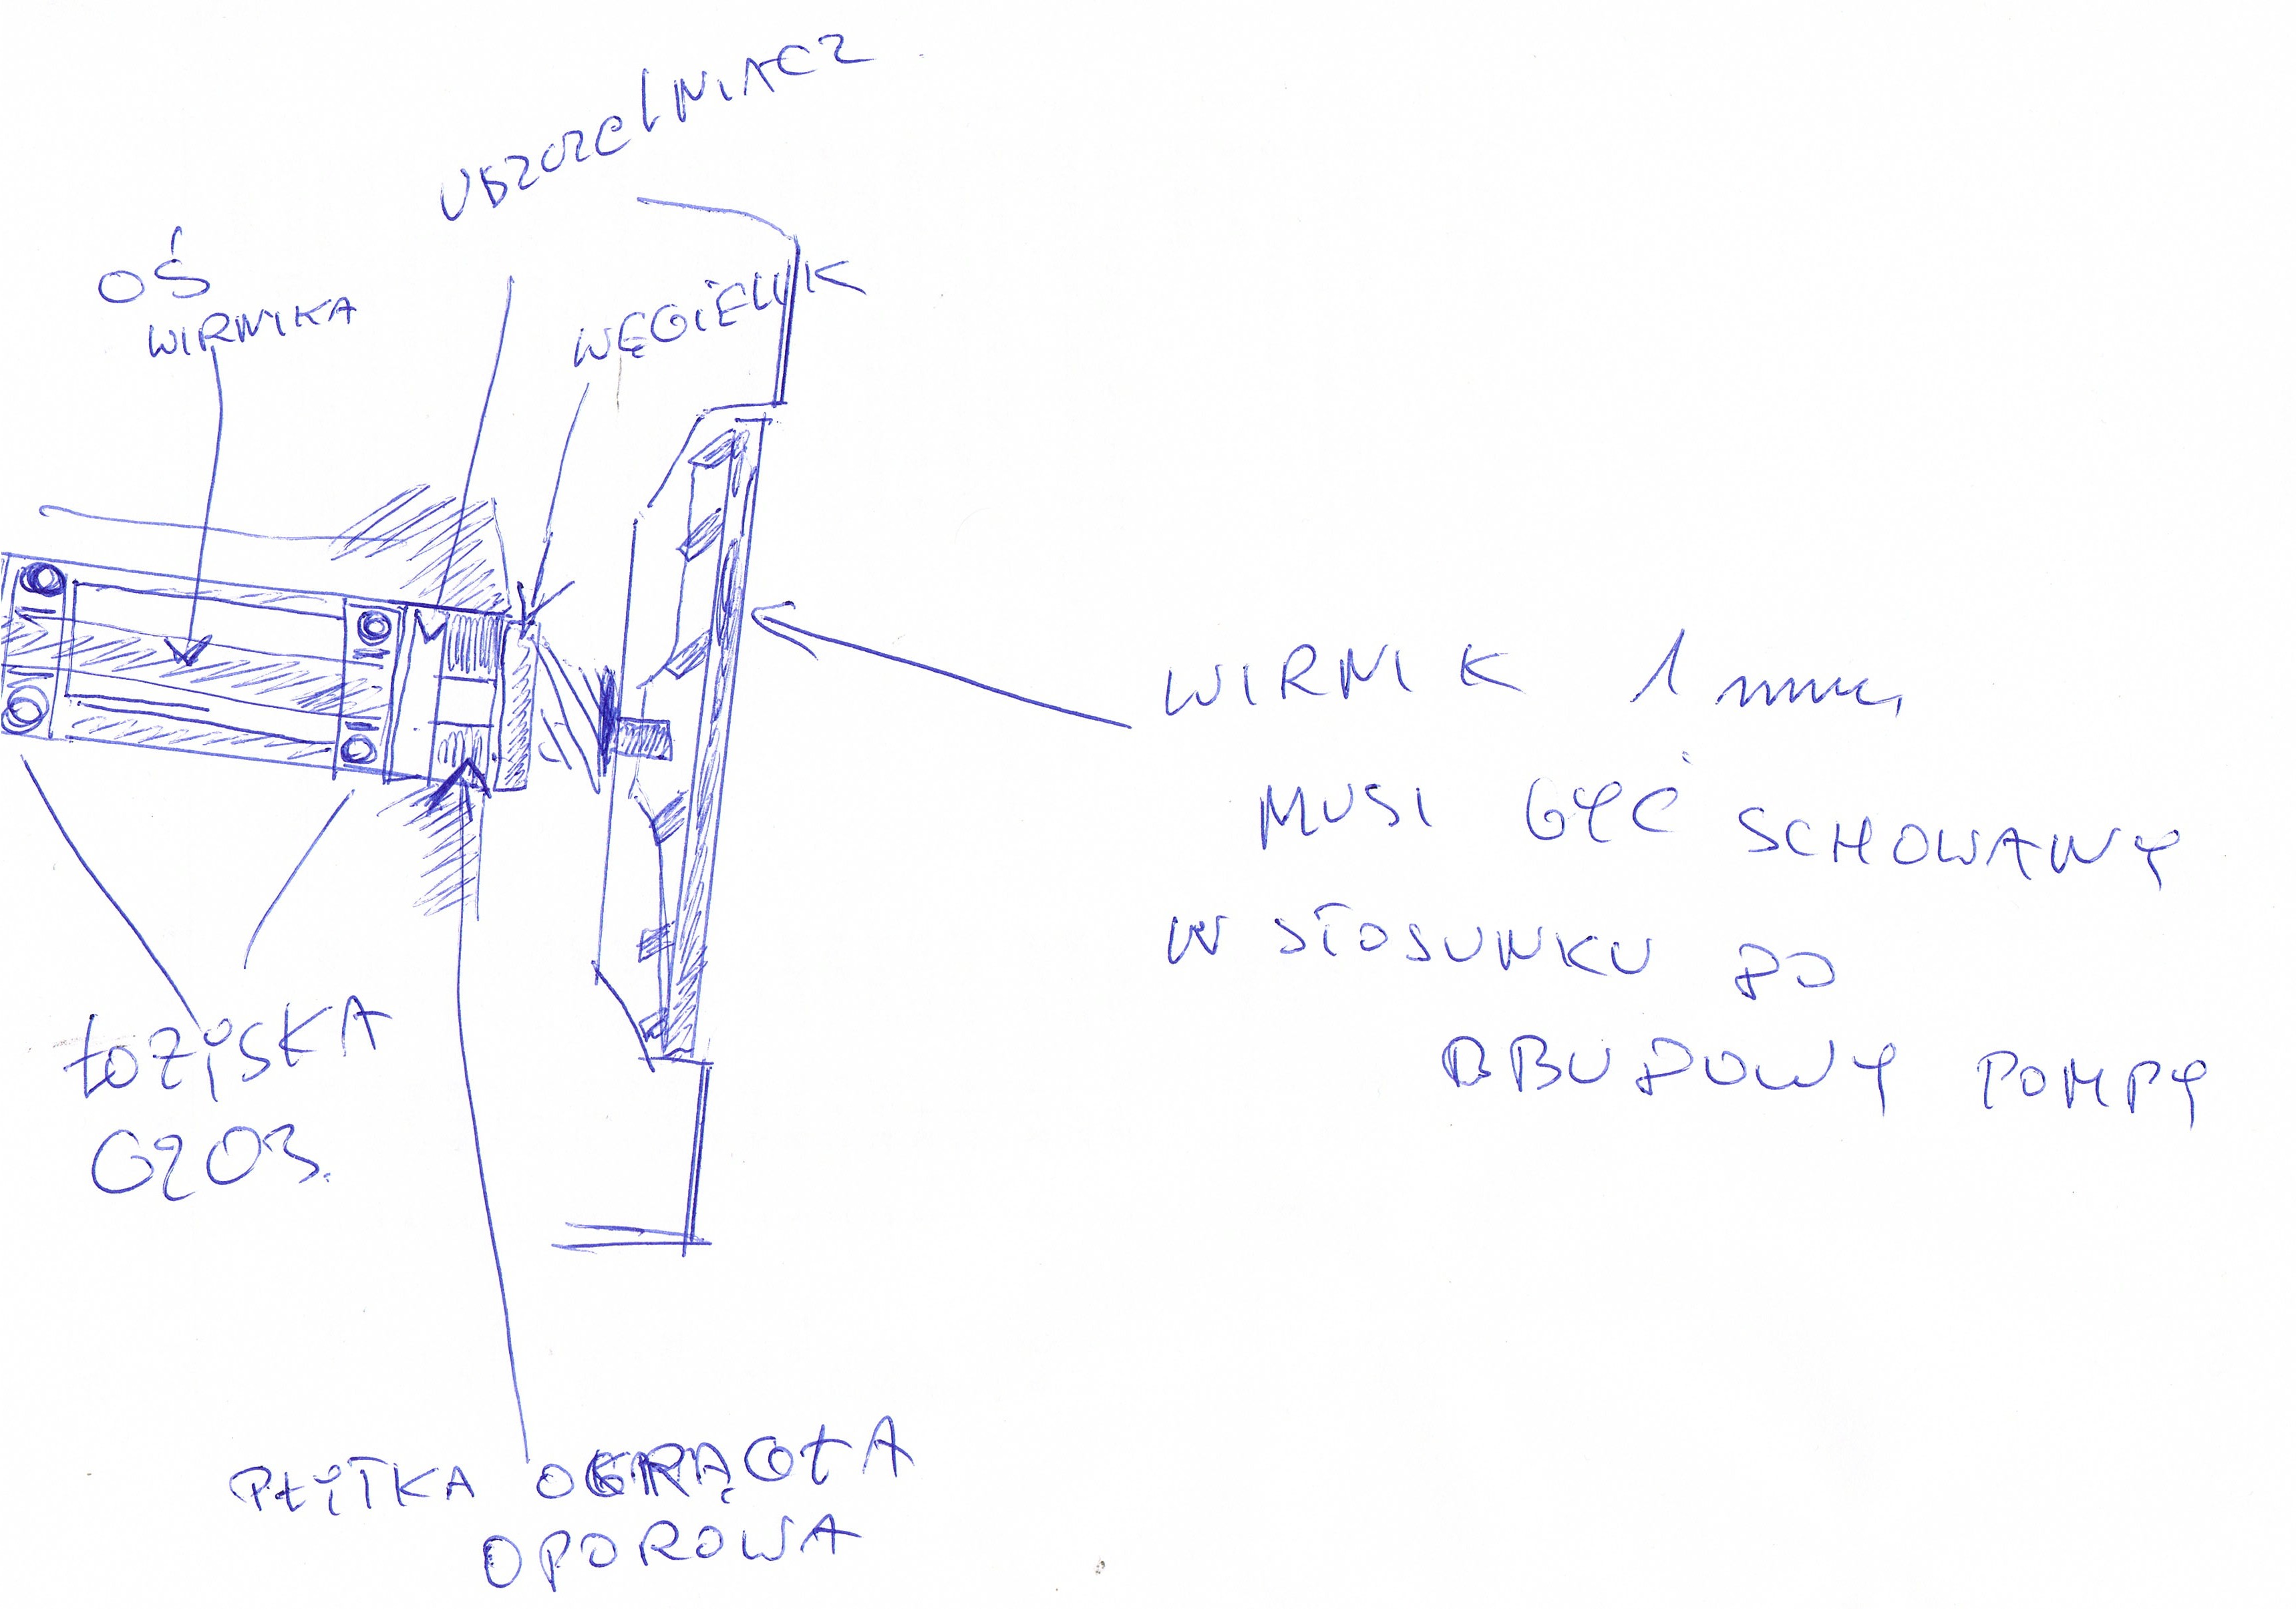 USZCZELNIACZ
OŚ
WIRNIKA
WĘGIELIK
WIRNIK 1 mm
MUSI BYĆ SCHOWANY
W STOSUNKU DO
OBUDOWY POMPY
ŁOŻYSKA
6203.
PŁYTKA OKRĄGŁA
OPOROWA